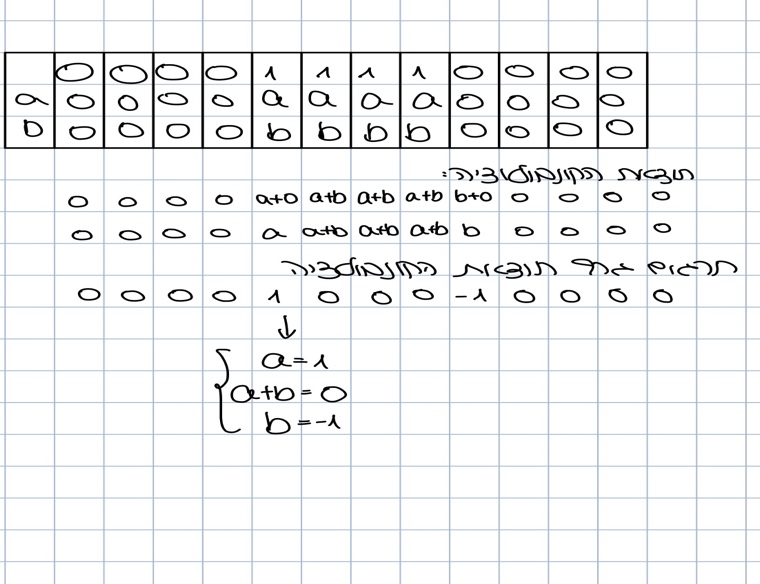 0 0 0 0 1 1 1 1 0 0 0 0
a 0 0 0 0 a a a a 0 0 0 0
b 0 0 0 0 b b b b 0 0 0 0
תוצאת הקונבולוציה:
0 0 0 0 a+0 a+b a+b a+b b+0 0 0 0 0
0 0 0 0 a a+b a+b a+b b 0 0 0 0
תוצאת הקונבולוציה
0 0 0 0 1 0 0 0 -1 0 0 0 0
↓
a=1
a+b=0
b=-1